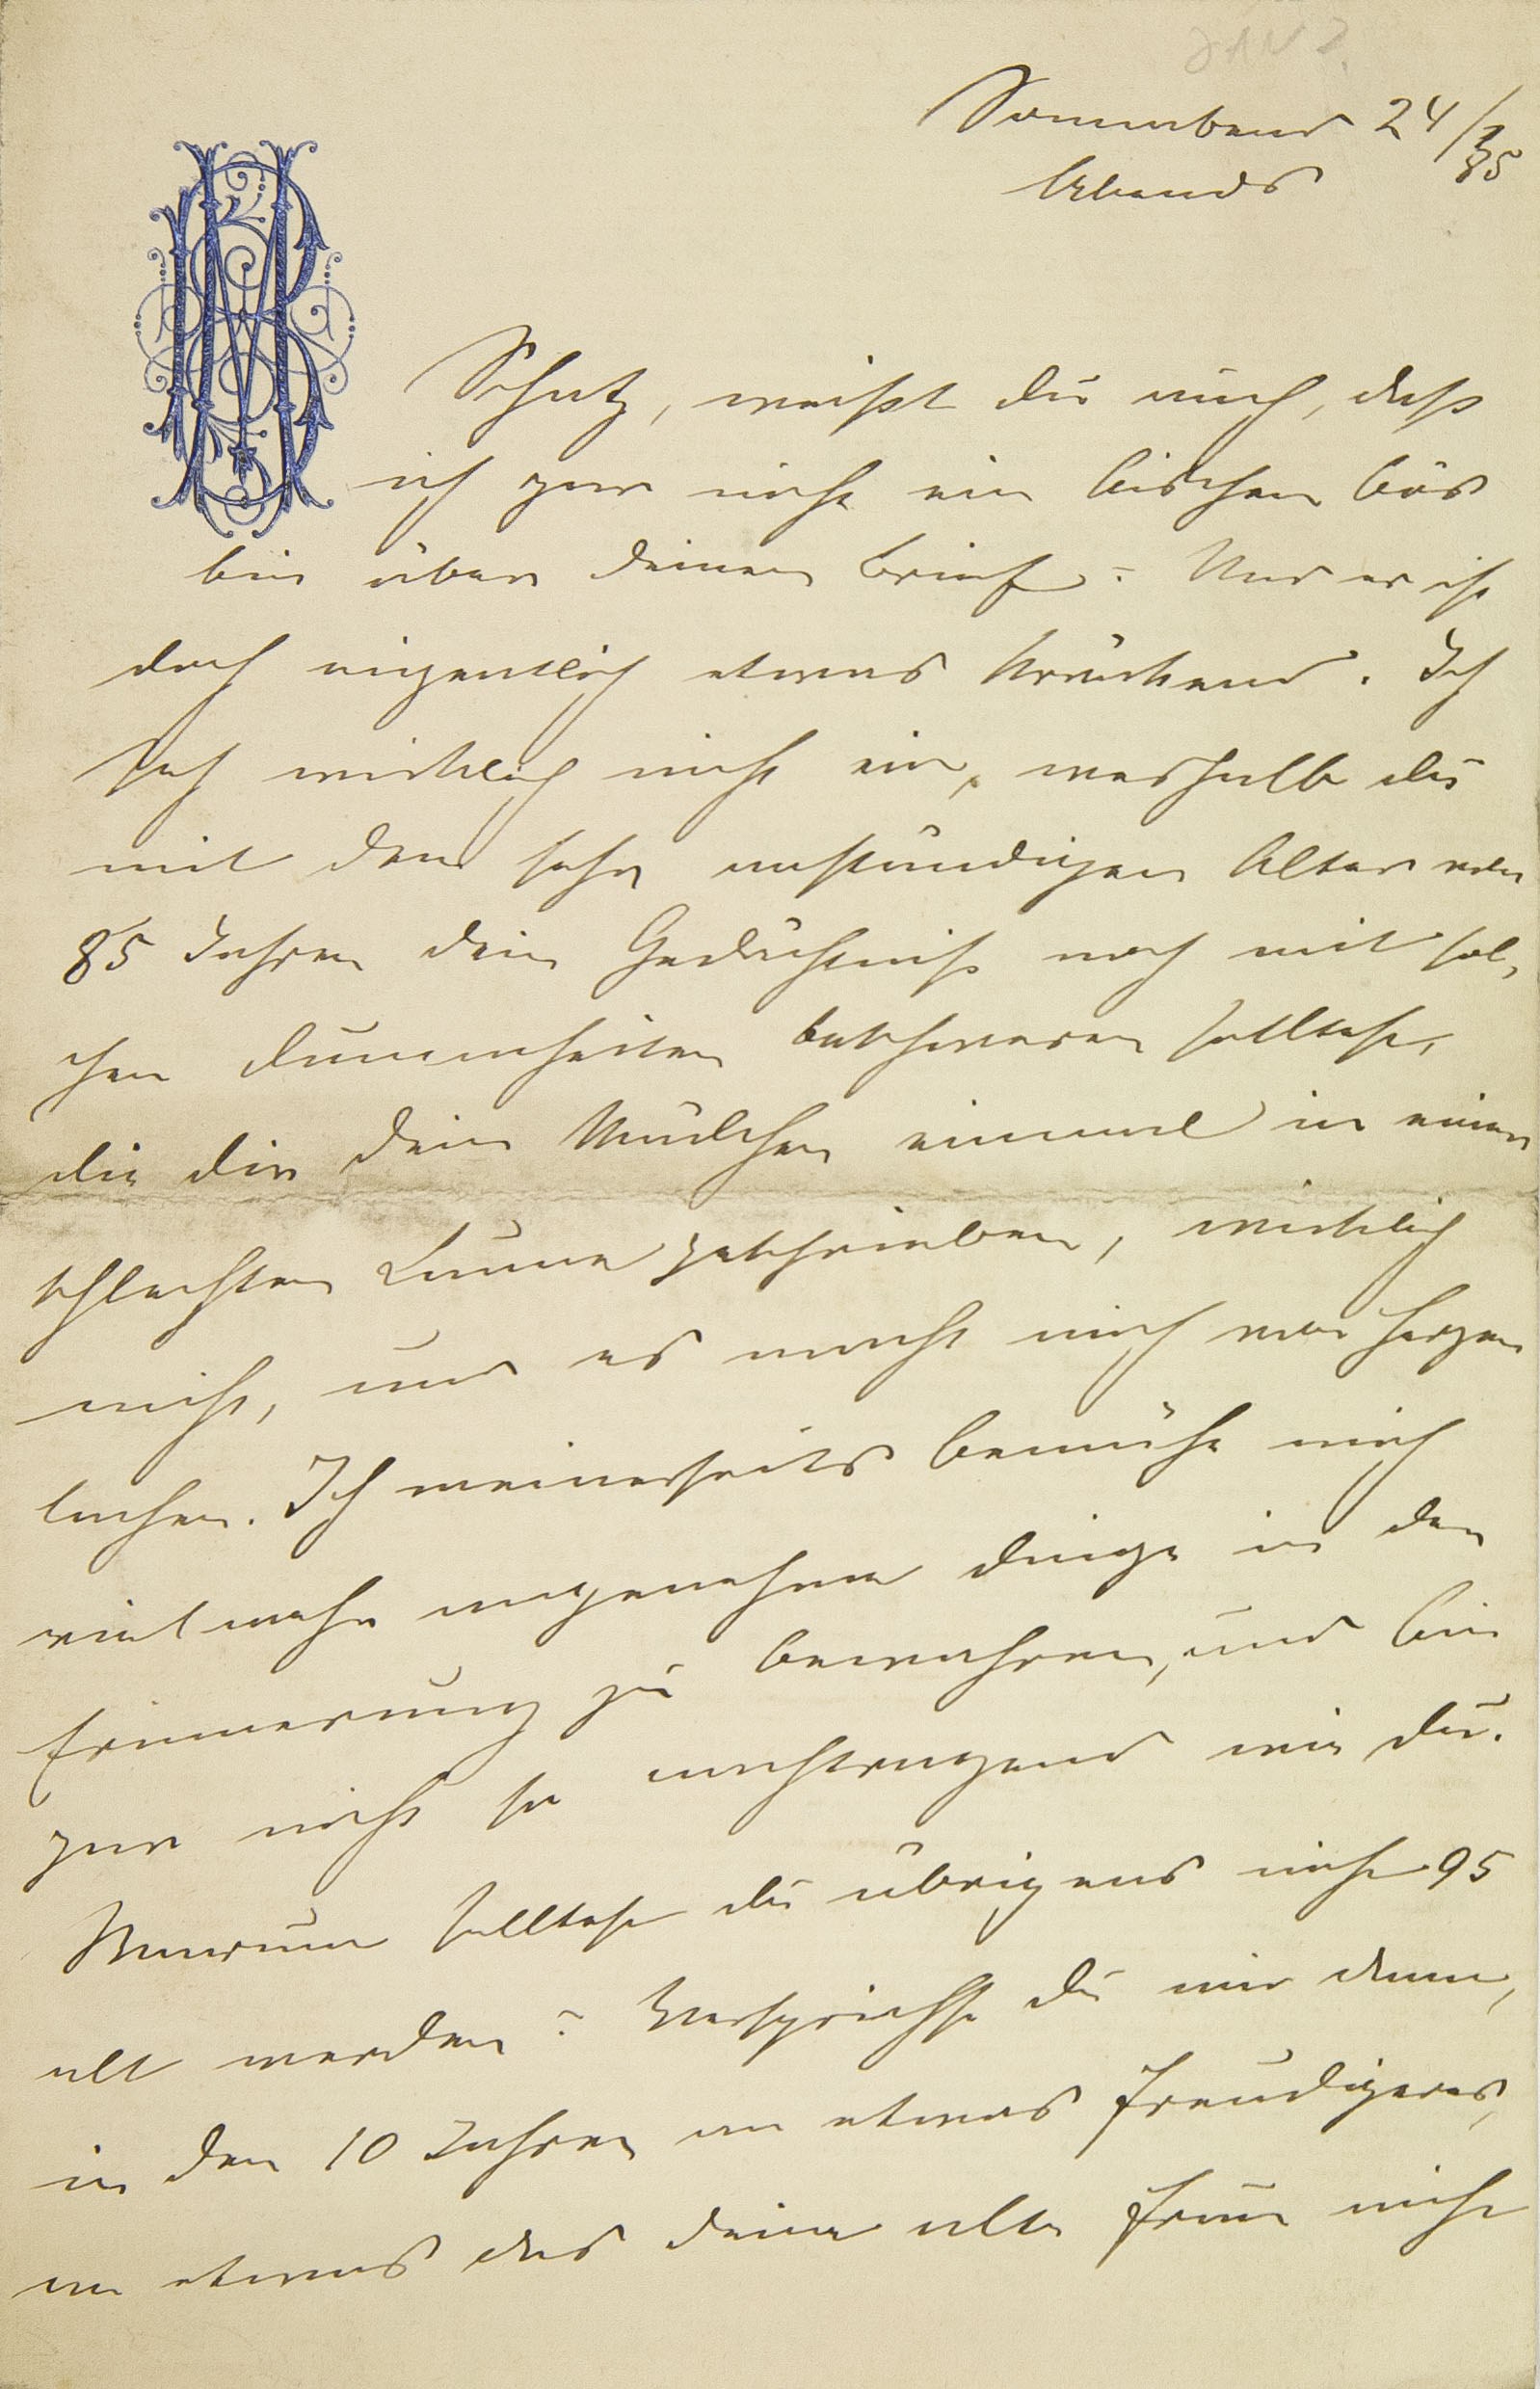 JAN ?
Sonnabend 24/1 85
Abends
MB
Schatz, weißt du auch, daß
ich gar nicht ein bischen bös
bin über deinen Brief? Und er ist
doch eigentlich etwas kränkend. Ich
seh wirklich nicht ein, weshalb du
mit dem sehr anständigen Alter von
85 Jahren dein Gedächtniß noch mit sol,
chen Dummheiten beschweren solltest,
die dir dein Mädchen einmal in einer
schlechten Laune geschrieben, wirklich
nicht, und es macht mich von Herzen
lachen. Ich meinerseits bemühe mich
vielmehr angenehme Dinge in der
Erinnerung zu bewahren, und bin
gar nicht so nachtragend wie du.
Warum solltest du übrigens nicht 95
alt werden? Versprichst du mir denn,
in den 10 Jahren an etwas freudigeres,
an etwas das deine alte Frau nicht